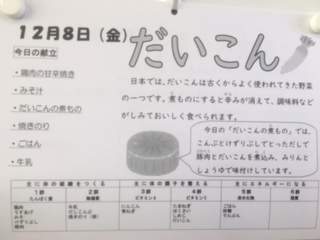 12月8日(金)
だいこん
今日の献立
・鶏肉の甘辛焼き
・みそ汁
・だいこんの煮もの
・焼きのり
・ごはん
・牛乳
日本では、だいこんは古くからよく使われてきた野菜
の一つです。煮ものにすると辛みが消えて、調味料など
がしみておいしく食べられます。
今日の「だいこんの煮もの」では、
こんぶとけずりぶしでとっただしで
豚肉とだいこんを煮込み、みりんと
しょうゆで味付けしています。
主に体の組織をつくる
主に体の調子を整える
主にエネルギーになる
1群
2群
3群
4群
5群
6群
たんぱく質
無機質
ビタミンA
ビタミンC
炭水化物
脂質
鶏肉
牛乳
にんじん
ごはん